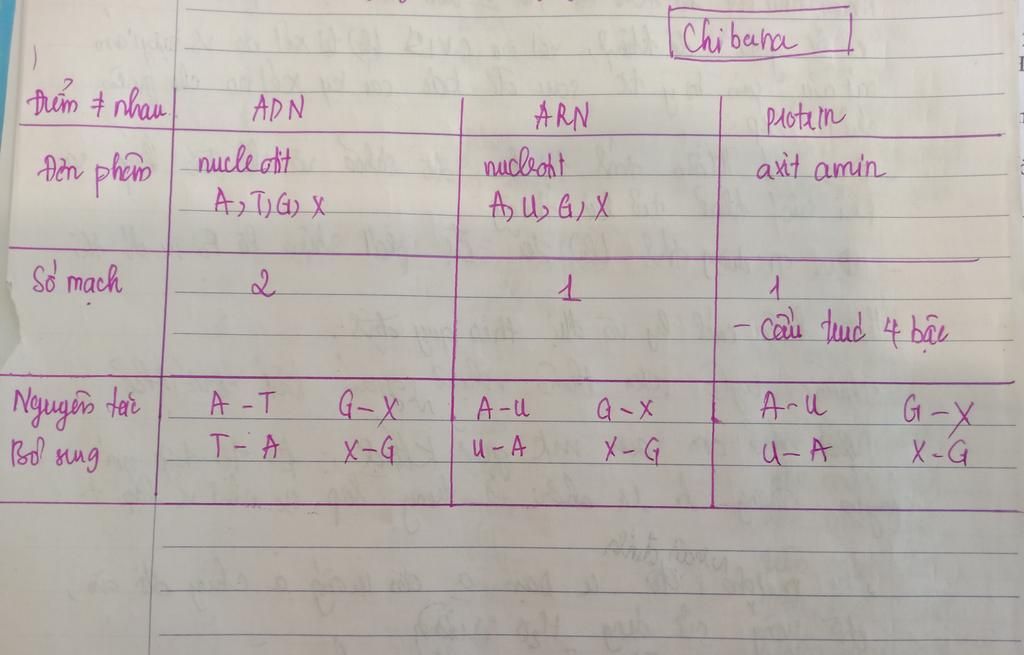 Chibana
Điểm ≠ nhau ADN ARN protein
Đơn phân nucleotit nucleotit axit amin
A, T, G, X A, U, G, X
Số mạch 2 1 1
- Cấu trúc 4 bậc
Nguyên tắc A - T G - X A - U G - X A - U G - X
Bổ sung T - A X - G U - A X - G U - A X - G